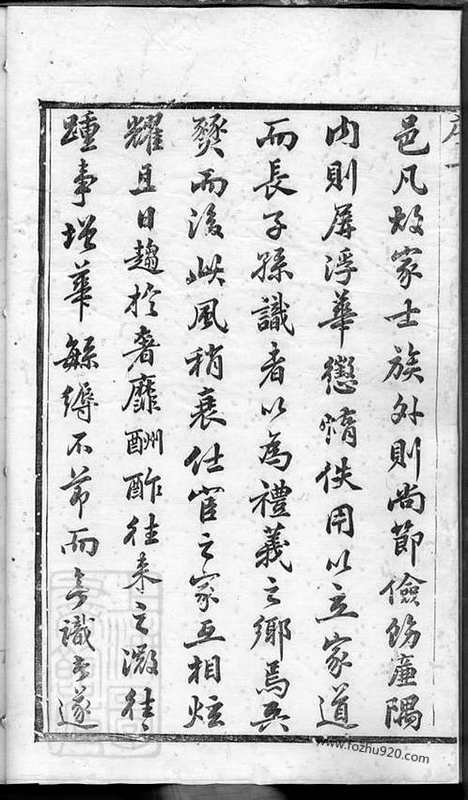 邑凡故家士族外則尚節儉飭廉隅
内則屏浮華懲惰佚用以立家道
而長子孫識者以為禮義之鄉焉兵
燹而後此風稍衰仕宦之家互相炫
耀且日趨於奢靡酬酢往來之往〻
踵事增華緐縟不節而無識者遂
www.fozhu920.com